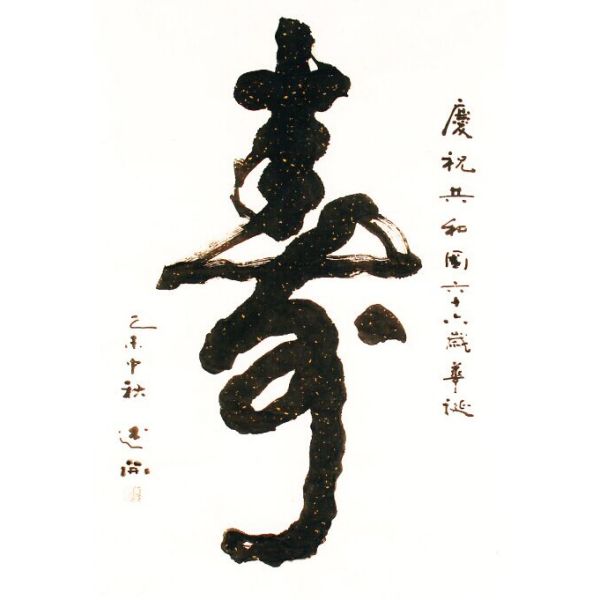 慶祝共和國六十六歲華誕
壽
乙未中秋